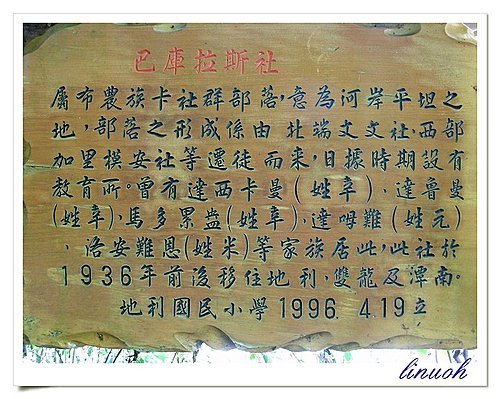 巴庫拉斯社
屬布農族卡社群部落,意為河岸平坦之
地,部落之形成係由北端丈丈社、西部
加里模安社等遷徒而來,日據時期設有
教育所。曾有達西卡曼(姓辛)、達魯曼
(姓辛),馬多累蓋(姓辛)、達呣難(姓元)
、洛安難恩(姓米)等家族居此,此社於
1936年前後移住地利,雙龍及潭南。
地利國民小學1996. 4.19立
linuoh